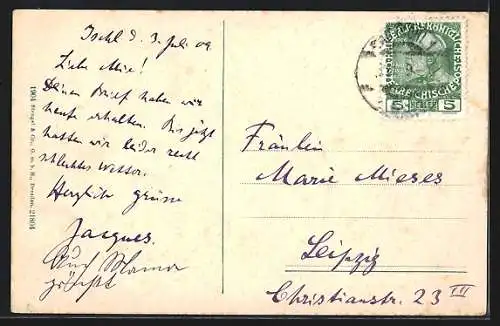 Ischl d. 3. Juli 09
Liebe Mize!
Deinen Brief haben wir
heute erhalten. Bis jetzt
hatten wir leider recht
schlechtes Wetter.
Herzlich grüsse
Jacques.
Auch Mama
grüsst
1904 Stengel & Co., G. m. b. H., Dresden. 21804
5 HELLER 5
Fräulein
Marie Mieses
Leipzig
Christianstr. 23 III